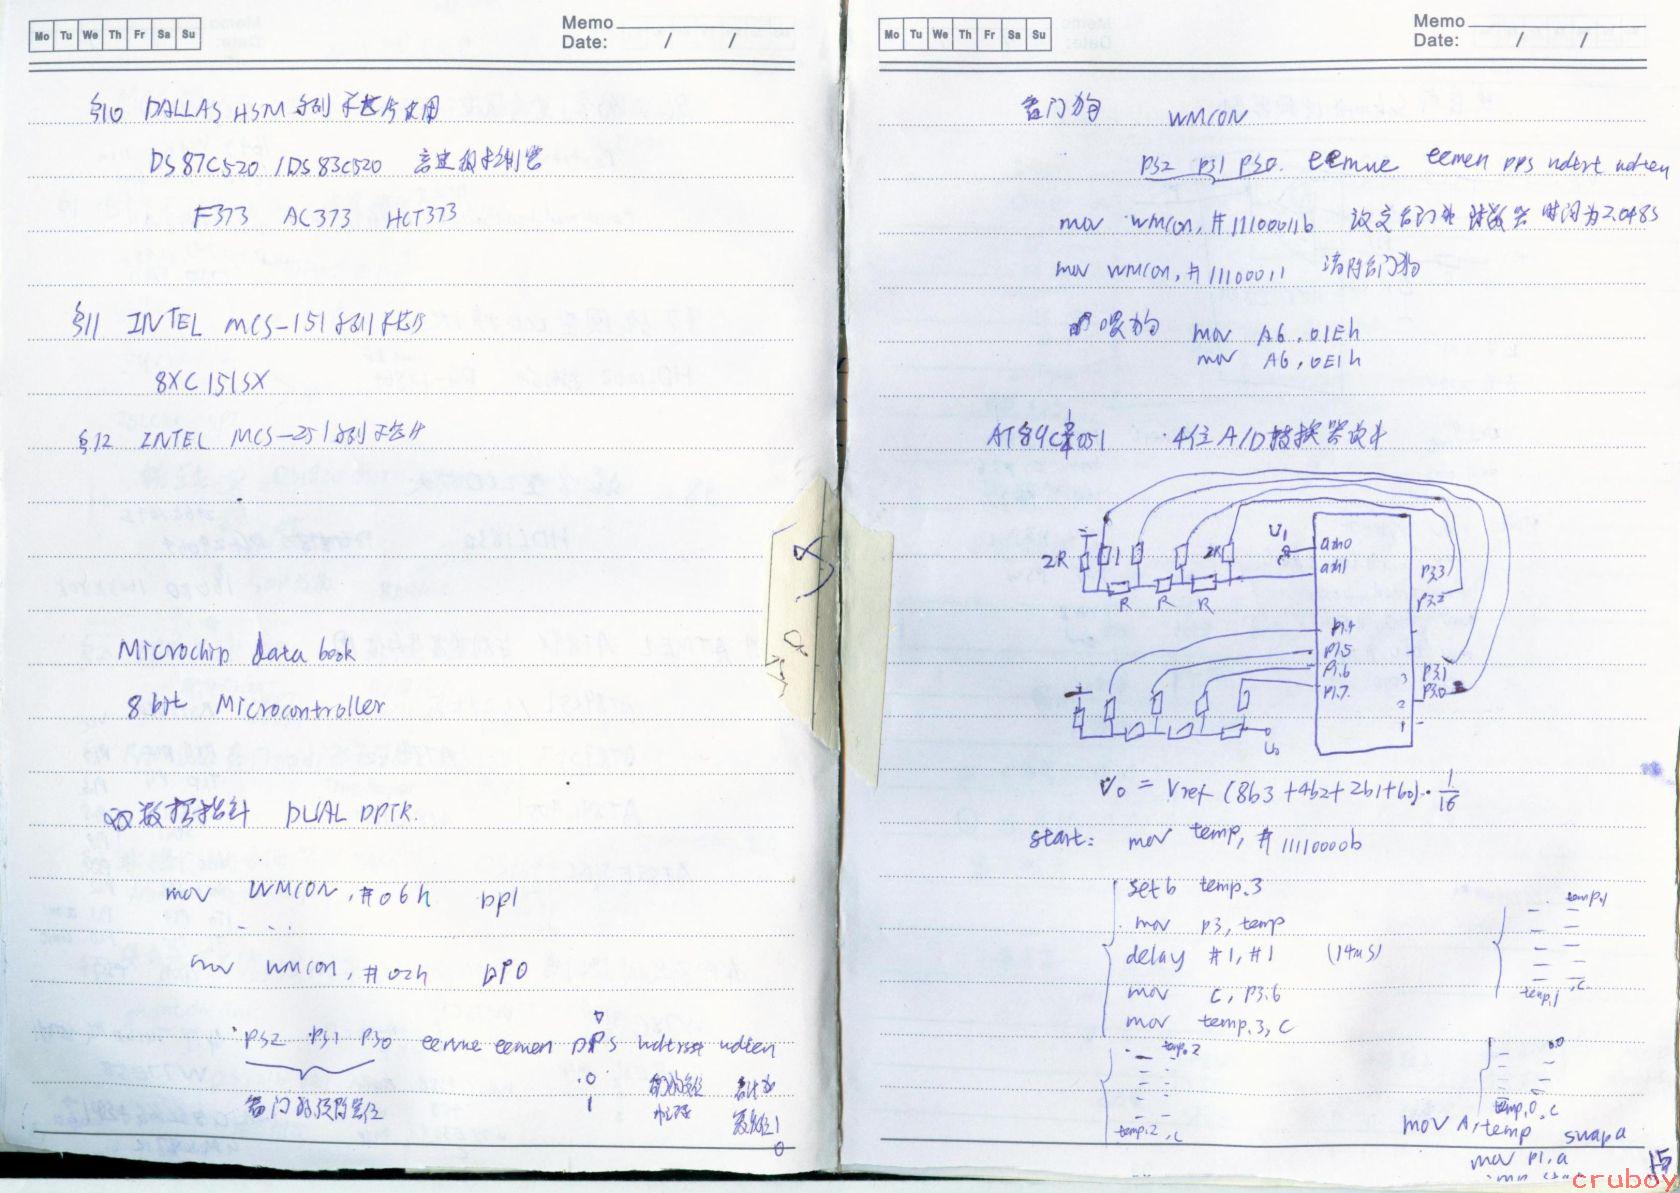 Mo Tu We Th Fr Sa Su
Memo
Date: / /
§10 DALLAS HSM 系列 芯片使用
DS87C520 / DS83C520 高速微控制器
F373 AC373 HCT373
§11 INTEL MCS-151系列芯片
8XC151SX
§12 INTEL MCS-251系列芯片
Microchip data book
8bit Microcontroller
双数据指针 DUAL DPTR.
mov WMCON, #06h DP1
...
mov wmcon, #02h DP0
PS2 PS1 PS0 eemwe eemen DPS wdtrst wdten
0
1
看门狗预分频位
1
0
Mo Tu We Th Fr Sa Su
Memo
Date: / /
看门狗 WMCON
PS2 PS1 PS0. eemwe eemen DPS wdtrst wdten
mov wmcon, #11100011b 设定看门狗 时间为2.048S
mov wmcon, #11100011 清除看门狗
喂狗 mov A6, 01Eh
mov A6, 0E1h
4位A/D转换器设计
U1
2R 2R
ain0
ain1
P3.3
P3.2
R R R
P1.4
P1.5
P1.6
P1.7
3 P3.1
P3.0
2
1
V0 = Vref (8b3 + 4b2 + 2b1 + b0) · 1/16
start: mov temp, #11110000b
setb temp.3
mov p3, temp
delay #1, #1 (14mS)
mov C, P3.6
mov temp.3, C
temp.1
temp.1, C
temp.2
temp.2, C
temp.0, C
mov A, temp
swap a
mov P1, a
15
cruboy